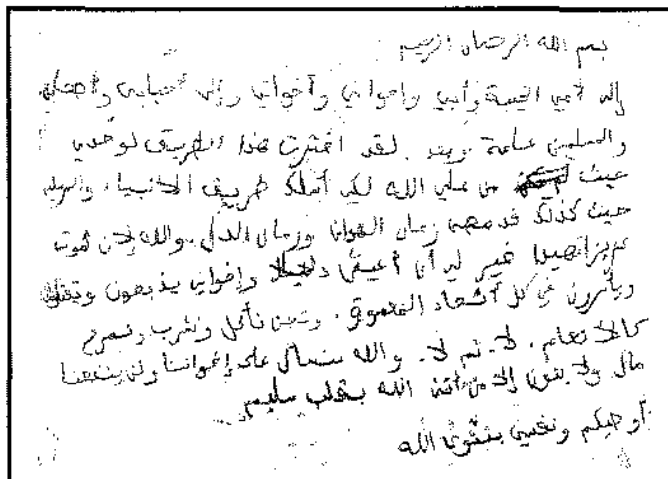 بسم الله الرحمان الرحيم
إلى أمي الحبيبة وأبي وإخواني وأخواتي وإلى أحبابي وأصحابي
والمسلمين عامة وبعد. لقد اخترت هذا الطريق لوحدي
حيث من علي الله لكي أسلك طريق الأنبياء والرسل
حيث كذلك قد مضى زمان الهوان وزمان الذل. والله لإن أموت
عزيزا خير لي أن أعيش ذليلا وإخواني يذبحون
ويأسرون في كل أنحاء. ونحن نأكل ونشرب ونمرح
كالأنعام. لا. ثم لا. والله سنسأل على إخواننا ولن ينفعنا
مال ولا بنون إلا من أتى الله بقلب سليم
أوصيكم ونفسي بتقوى الله